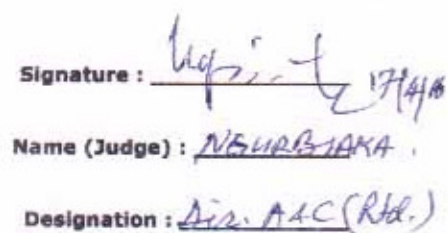 Signature :
Name (Judge) : NGURBIAKA .
Designation : Dir. A&C (Rtd.)